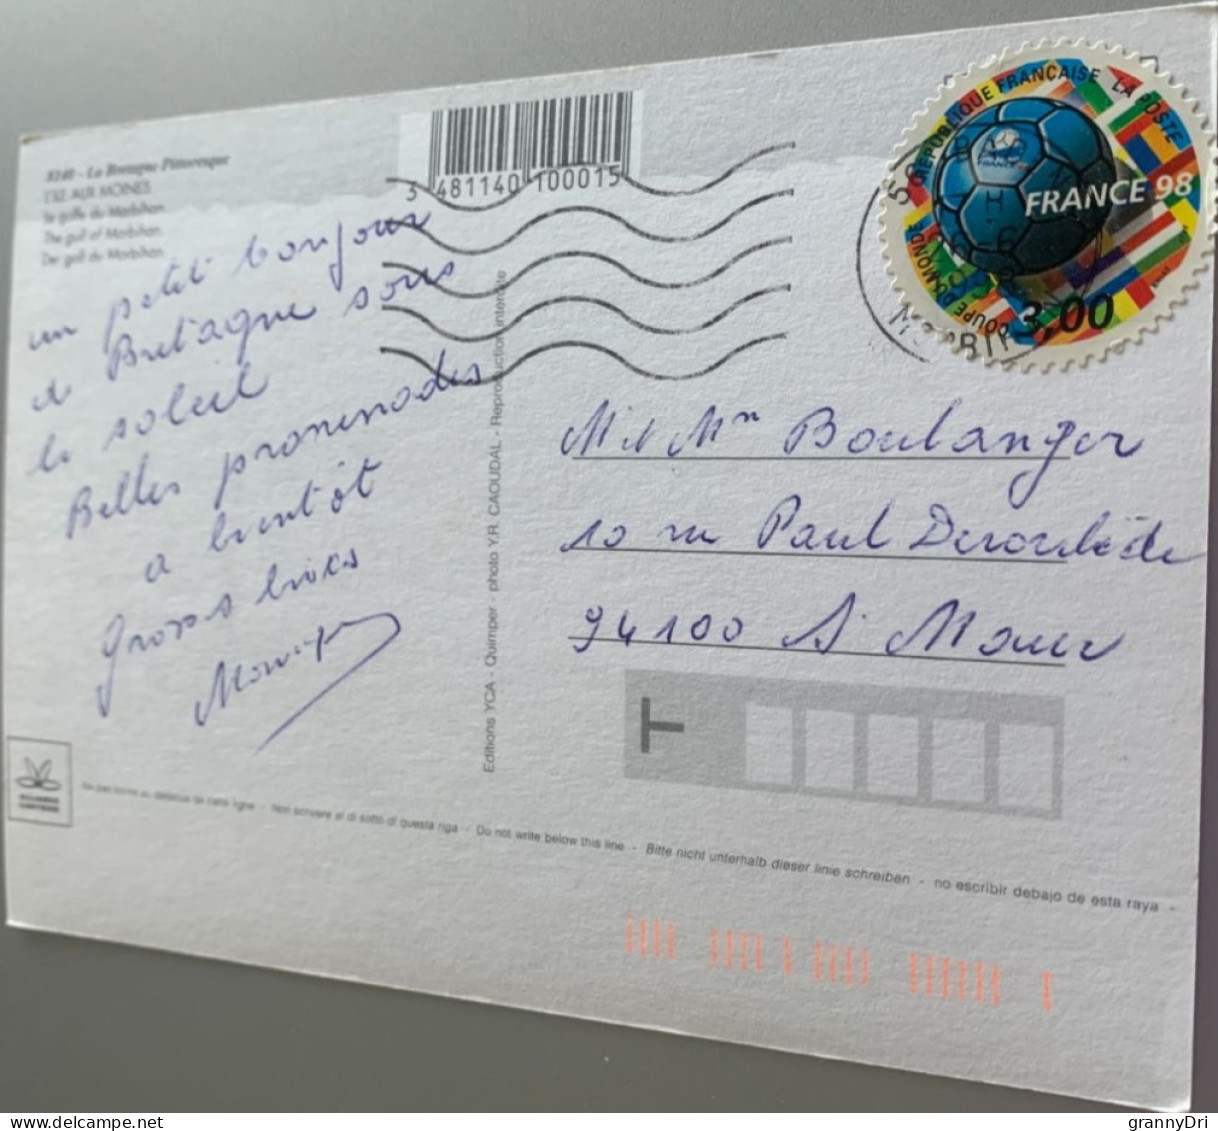 8140 - La Bretagne Pittoresque
L'ILE AUX MOINES
Le golfe du Morbihan.
The gulf of Morbihan.
Der golf du Morbihan.
3 481140 100015
RÉPUBLIQUE FRANÇAISE LA POSTE
FRANCE 98
COUPE DU MONDE
3,00
MORBIHAN
un petit bonjour
de Bretagne sous
le soleil
Belles promenades
a bientôt
Grosses bises
Monique
Editions YCA - Quimper - photo Y.R. CAOUDAL - Reproduction interdite
M et Mme Boulanger
10 rue Paul Deroulède
94100 St Maur
T
Ne pas écrire au dessous de cette ligne - Non scrivere al di sotto di questa riga - Do not write below this line - Bitte nicht unterhalb dieser linie schreiben - no escribir debajo de esta raya -
grannyDri
delcampe.net